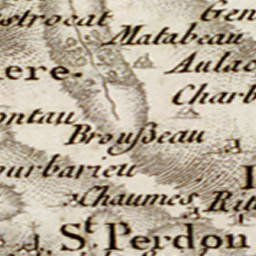 strocat
Gen
Matabeau
Aulac
ere.
Charb
ontau
Broußeau
urbarieu
Chaumes
Rit
St. Perdon